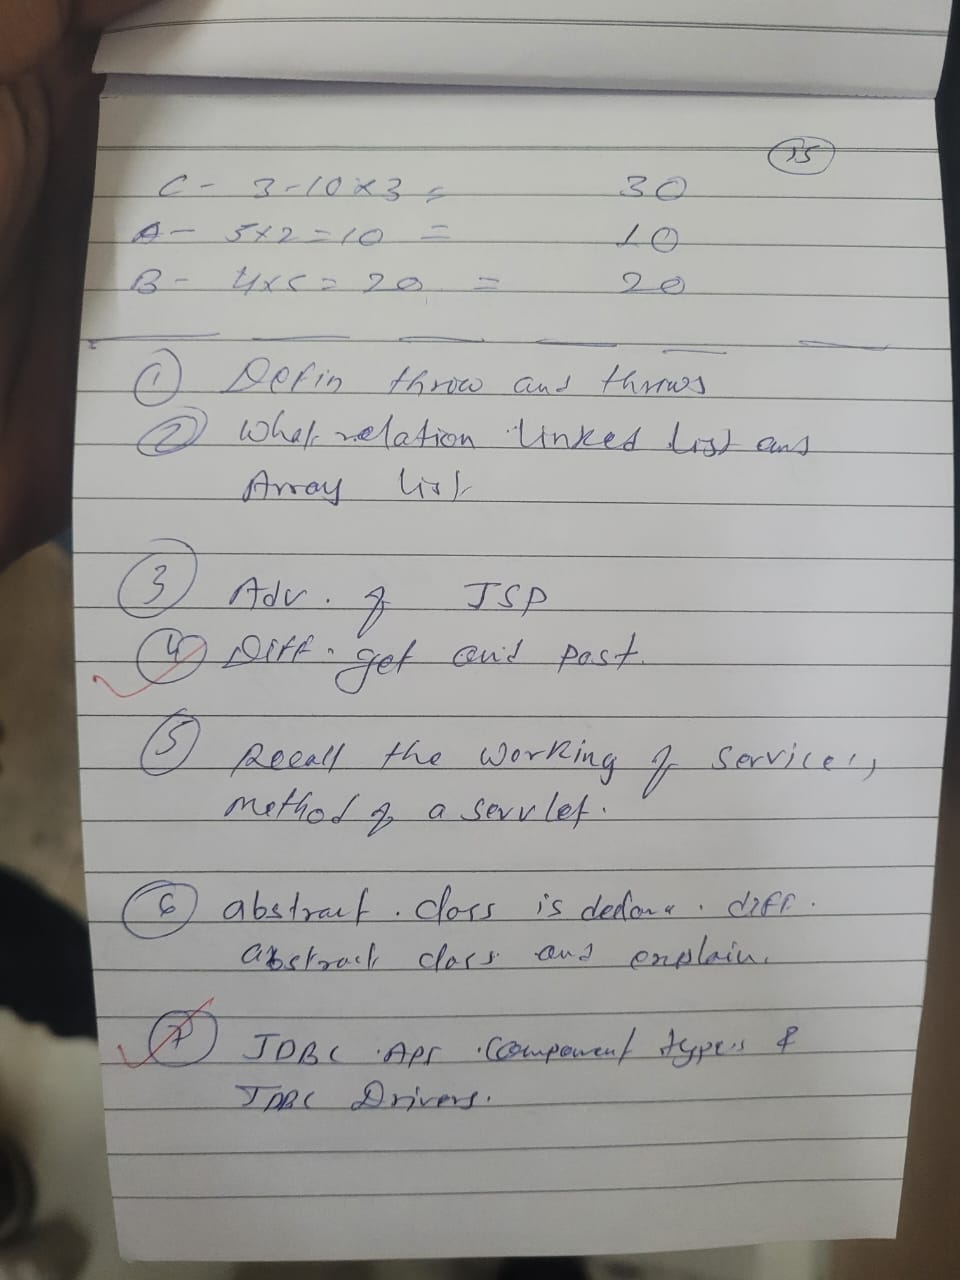 35
C - 3-10x3 = 30
A - 5x2=10 = 10
B - 4x5=20 = 20
① Defin throw and throws
② What relation linked list and
Array list
③ Adv. of JSP
④ Diff. get and post.
⑤ Recall the working of service,
method of a servlet.
⑥ abstract. class is diff.
abstract class and explain.
⑦ JDBC API Component types &
JDBC Drivers.